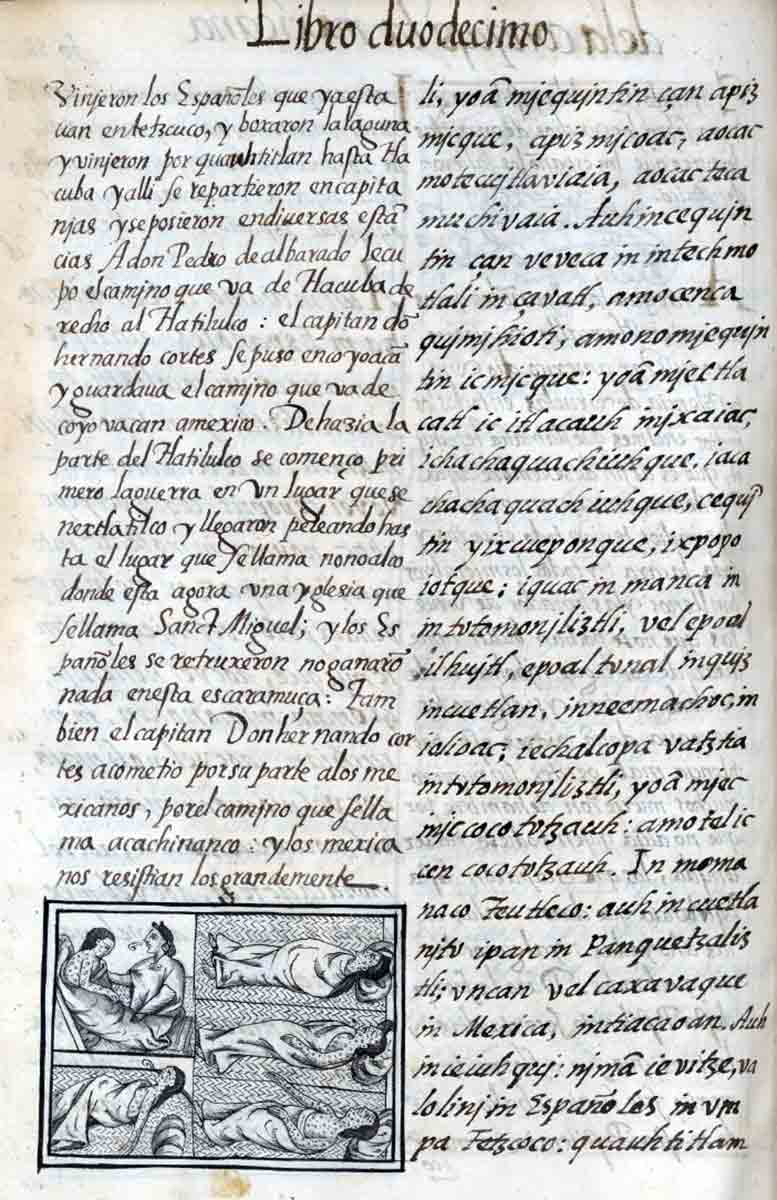 Libro duodecimo
Vinjeron los Españoles que ya esta
uan en tetzcuco, y boxaron la laguna
y vinjeron por quauhtitlan hasta tla
cuba y alli se repartieron en capita
njas y se posieron en diuersas estã
cias A don Pedro de albarado le cu
po el camino que va de tlacuba de
recho al tlatilulco: el capitan dõ
hernando cortes se puso en coyoacã
y guardaua el camino que va de
coyovacan a mexico. De hazia la
parte del tlatilulco se començo pri
mero la guerra en vn lugar que se
nextlatilco y llegaron peleando has
ta el lugar que se llama nonoalco
donde esta agora vna yglesia que
se llama Sanct Miguel; y los Es
pañoles se retruxeron no ganarõ
nada en esta escaramuça: Tam
bien el capitan Don hernando cor
tes acometio por su parte a los me
xicanos, por el camino que se lla
ma acachinanco: y los mexica
nos resistian los grandemente.
li, yoã mjequjntin çan apiz
mjcque, apizmjcoac, aocac
motecujtlaviaia, aocac teca
muchivaia. Auh in cequjn
tin çan veveca in intech mo
tlali in çavatl, amo cenca
qujmjhioti, amo no mjequjn
tin ic mjcque: yoã mjec tla
catl ic itlacauh in jxaiac,
ichachaquachiuhque, iaca
chachaquachiuhque, cequj
tin yixcueponque, ixpopo
iotque; iquac in manca in
in totomonjliztli, vel epoal
ilhujtl, epoal tonal in quiz
in cuetlan, in neemachoc, in
ioliooac; ie chalcopa vatztia
in totomonjliztli, yoã mjec
injc cocototzauh: amo tel ic
cen cocototzauh. In moma
naco Teutleco: auh in cuetla
njto ipan in Panquetzaliz
tli; vncan vel caxavaque
in Mexica, in tiacaoan. Auh
in ie iuhquj: njmã ie vitze, va
lolinj in Españoles in vm
pa Tetzcoco: quauhtitlam